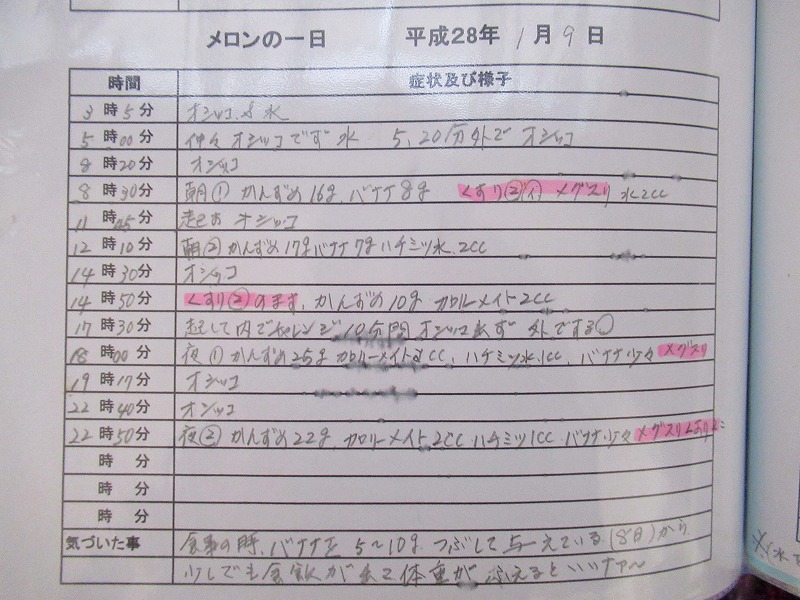 メロンの一日 平成28年 1月9日
時間 症状及び様子
3時5分 オシッコ 水
5時00分 仲々オシッコでず 水 5,20分外でオシッコ
8時20分 オシッコ
8時30分 朝① かんずめ16g、バナナ8g くすり②イ メグスリ 水2CC
11時45分 起き オシッコ
12時10分 朝② かんずめ17g バナナ7g ハチミツ水、2CC
14時30分 オシッコ
14時50分 くすり②のます、かんずめ10g カロリーメイト2CC
17時30分 起して内でチャレンジ10分間オシッコ出ず 外でする
18時00分 夜① かんずめ25g カロリーメイト CC、ハチミツ水1CC、バナナ少々 メグスリ
19時17分 オシッコ
22時40分 オシッコ
22時50分 夜② かんずめ22g、カロリーメイト2CC ハチミツ1CC バナナ少々 メグスリ
時 分
時 分
時 分
気づいた事 食事の時、バナナを5〜10gつぶして与えている(8日)から
少しでも食欲が出て体重がふえるといいナァ〜
水